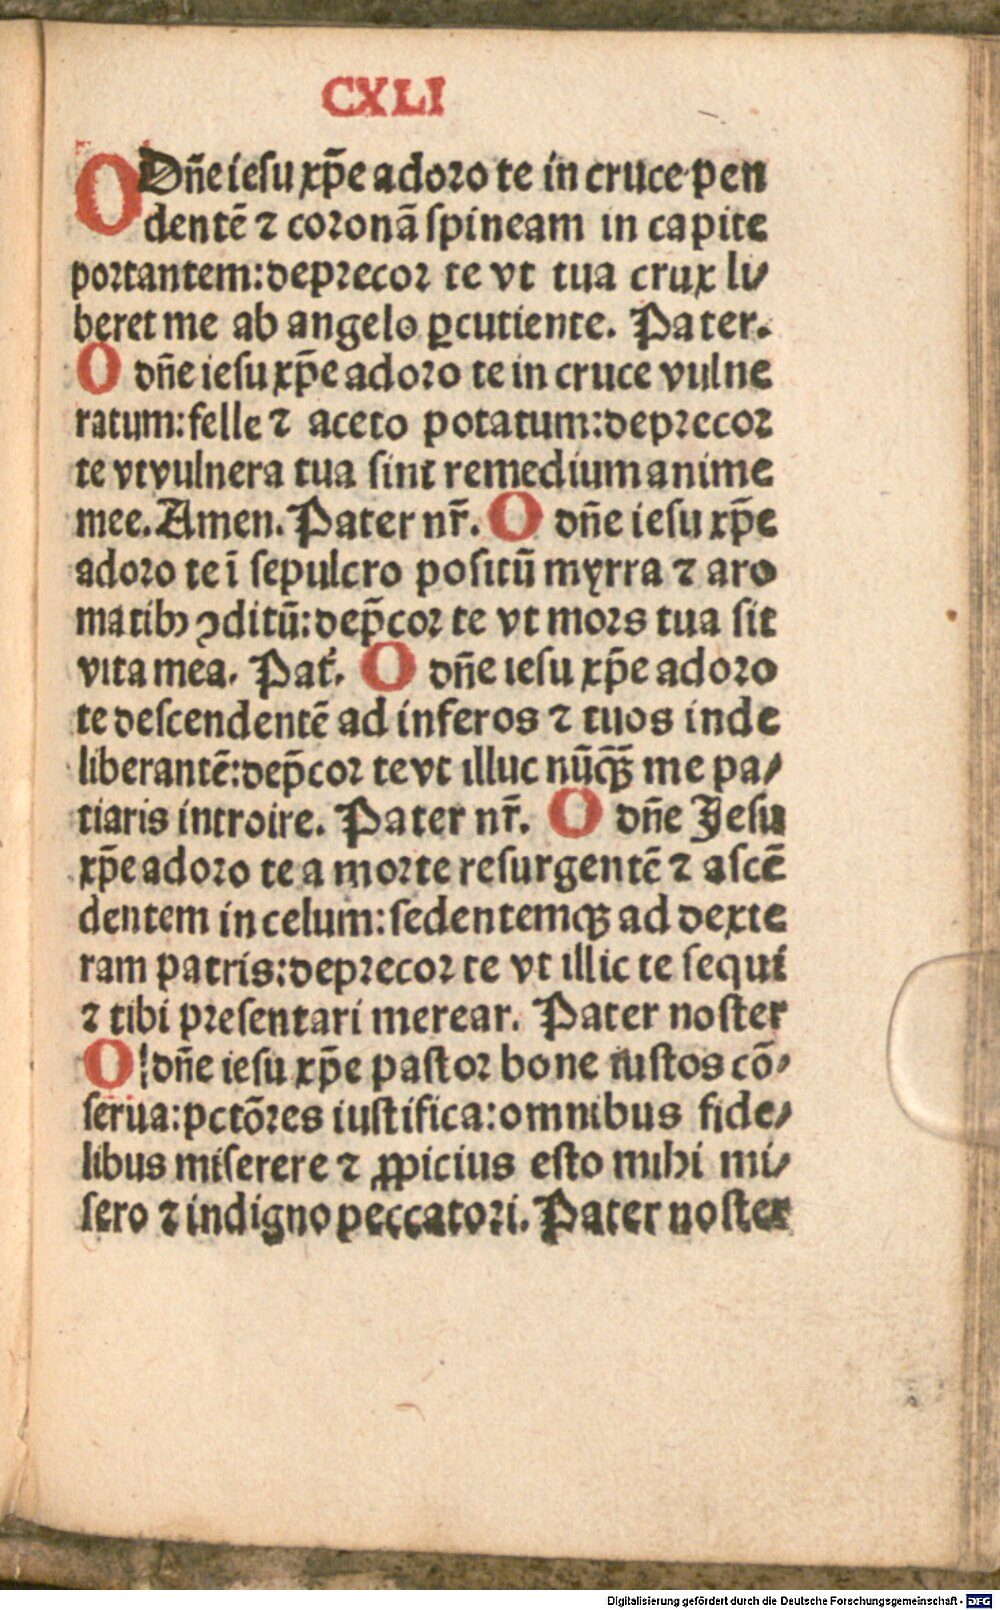 CXLI
O Dn̄e iesu xp̄e adoro te in cruce pen
dentē ⁊ coronā spineam in capite
portantem: deprecor te vt tua crux li⸗
beret me ab angelo ꝑcutiente. Pater.
O dn̄e iesu xp̄e adoro te in cruce vulne
ratum: felle ⁊ aceto potatum: deprecor
te vt vulnera tua sint remedium anime
mee. Amen. Pater nr̄. O dn̄e iesu xp̄e
adoro te ī sepulcro positū myrra ⁊ aro
matibꝫ ꝯditū: dep̄cor te vt mors tua sit
vita mea. Pat̄. O dn̄e iesu xp̄e adoro
te descendentē ad inferos ⁊ tuos inde
liberantē: dep̄cor te vt illuc nūq̄ꝫ me pa⸗
tiaris introire. Pater nr̄. O dn̄e Jesu
xp̄e adoro te a morte resurgentē ⁊ ascē
dentem in celum: sedentemqꝫ ad dexte
ram patris: deprecor te vt illic te sequi
⁊ tibi presentari merear. Pater noster
O dn̄e iesu xp̄e pastor bone iustos cō⸗
serua: pctōres iustifica: omnibus fide⸗
libus miserere ⁊ ꝓpicius esto mihi mi⸗
sero ⁊ indigno peccatori. Pater noster
Digitalisierung gefördert durch die Deutsche Forschungsgemeinschaft - DFG